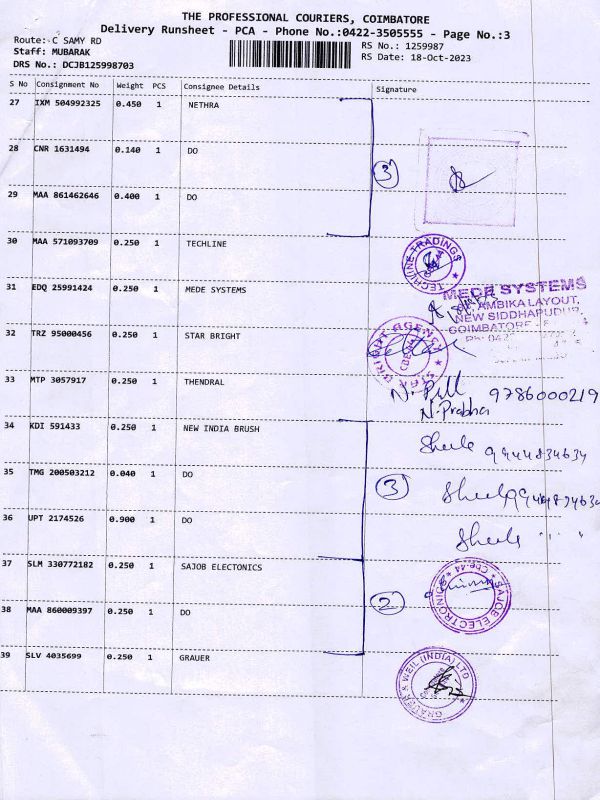 THE PROFESSIONAL COURIERS, COIMBATORE
Delivery Runsheet - PCA - Phone No.:0422-3505555 - Page No.:3
Route: C SAMY RD
Staff: MUBARAK
DRS No.: DCJB125998703
RS No.: 1259987
RS Date: 18-Oct-2023
S No Consignment No Weight PCS Consignee Details Signature
27 IXM 504992325 0.450 1 NETHRA
28 CNR 1631494 0.140 1 DO
3
29 MAA 861462646 0.400 1 DO
30 MAA 571093709 0.250 1 TECHLINE
TECHLINE TRADINGS
31 EDQ 25991424 0.250 1 MEDE SYSTEMS
MEDE SYSTEMS
AMBIKA LAYOUT,
NEW SIDDHAPUDUR,
COIMBATORE
32 TRZ 95000456 0.250 1 STAR BRIGHT
33 MTP 3057917 0.250 1 THENDRAL
9786000219
N. Prabha
34 KDI 591433 0.250 1 NEW INDIA BRUSH
Sheela 9944834634
35 TMG 200503212 0.040 1 DO
3 Sheela
36 UPT 2174526 0.900 1 DO
Sheela " " "
37 SLM 330772182 0.250 1 SAJOB ELECTONICS
SAJOB ELECTRONICS CBE-44
38 MAA 860009397 0.250 1 DO
2
39 SLV 4035699 0.250 1 GRAUER
GRAUER & WEIL (INDIA) LTD